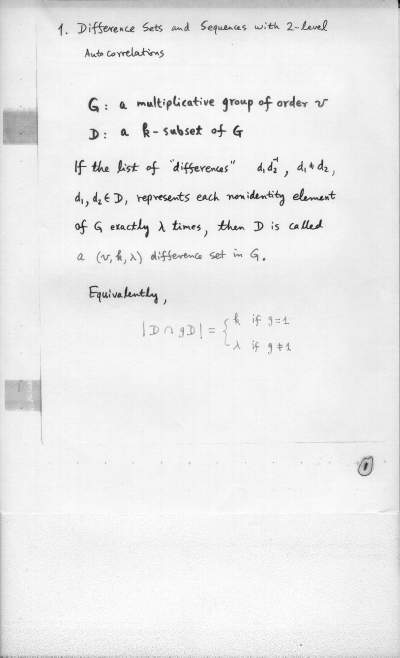 1. Difference Sets and Sequences with 2-level
Autocorrelations
G: a multiplicative group of order v
D: a k-subset of G
If the list of "differences" d₁d₂⁻¹, d₁≠d₂,
d₁, d₂ ∈ D, represents each nonidentity element
of G exactly λ times, then D is called
a (v, k, λ) difference set in G.
Equivalently,
|D ∩ gD| = { k if g=1
λ if g≠1
1